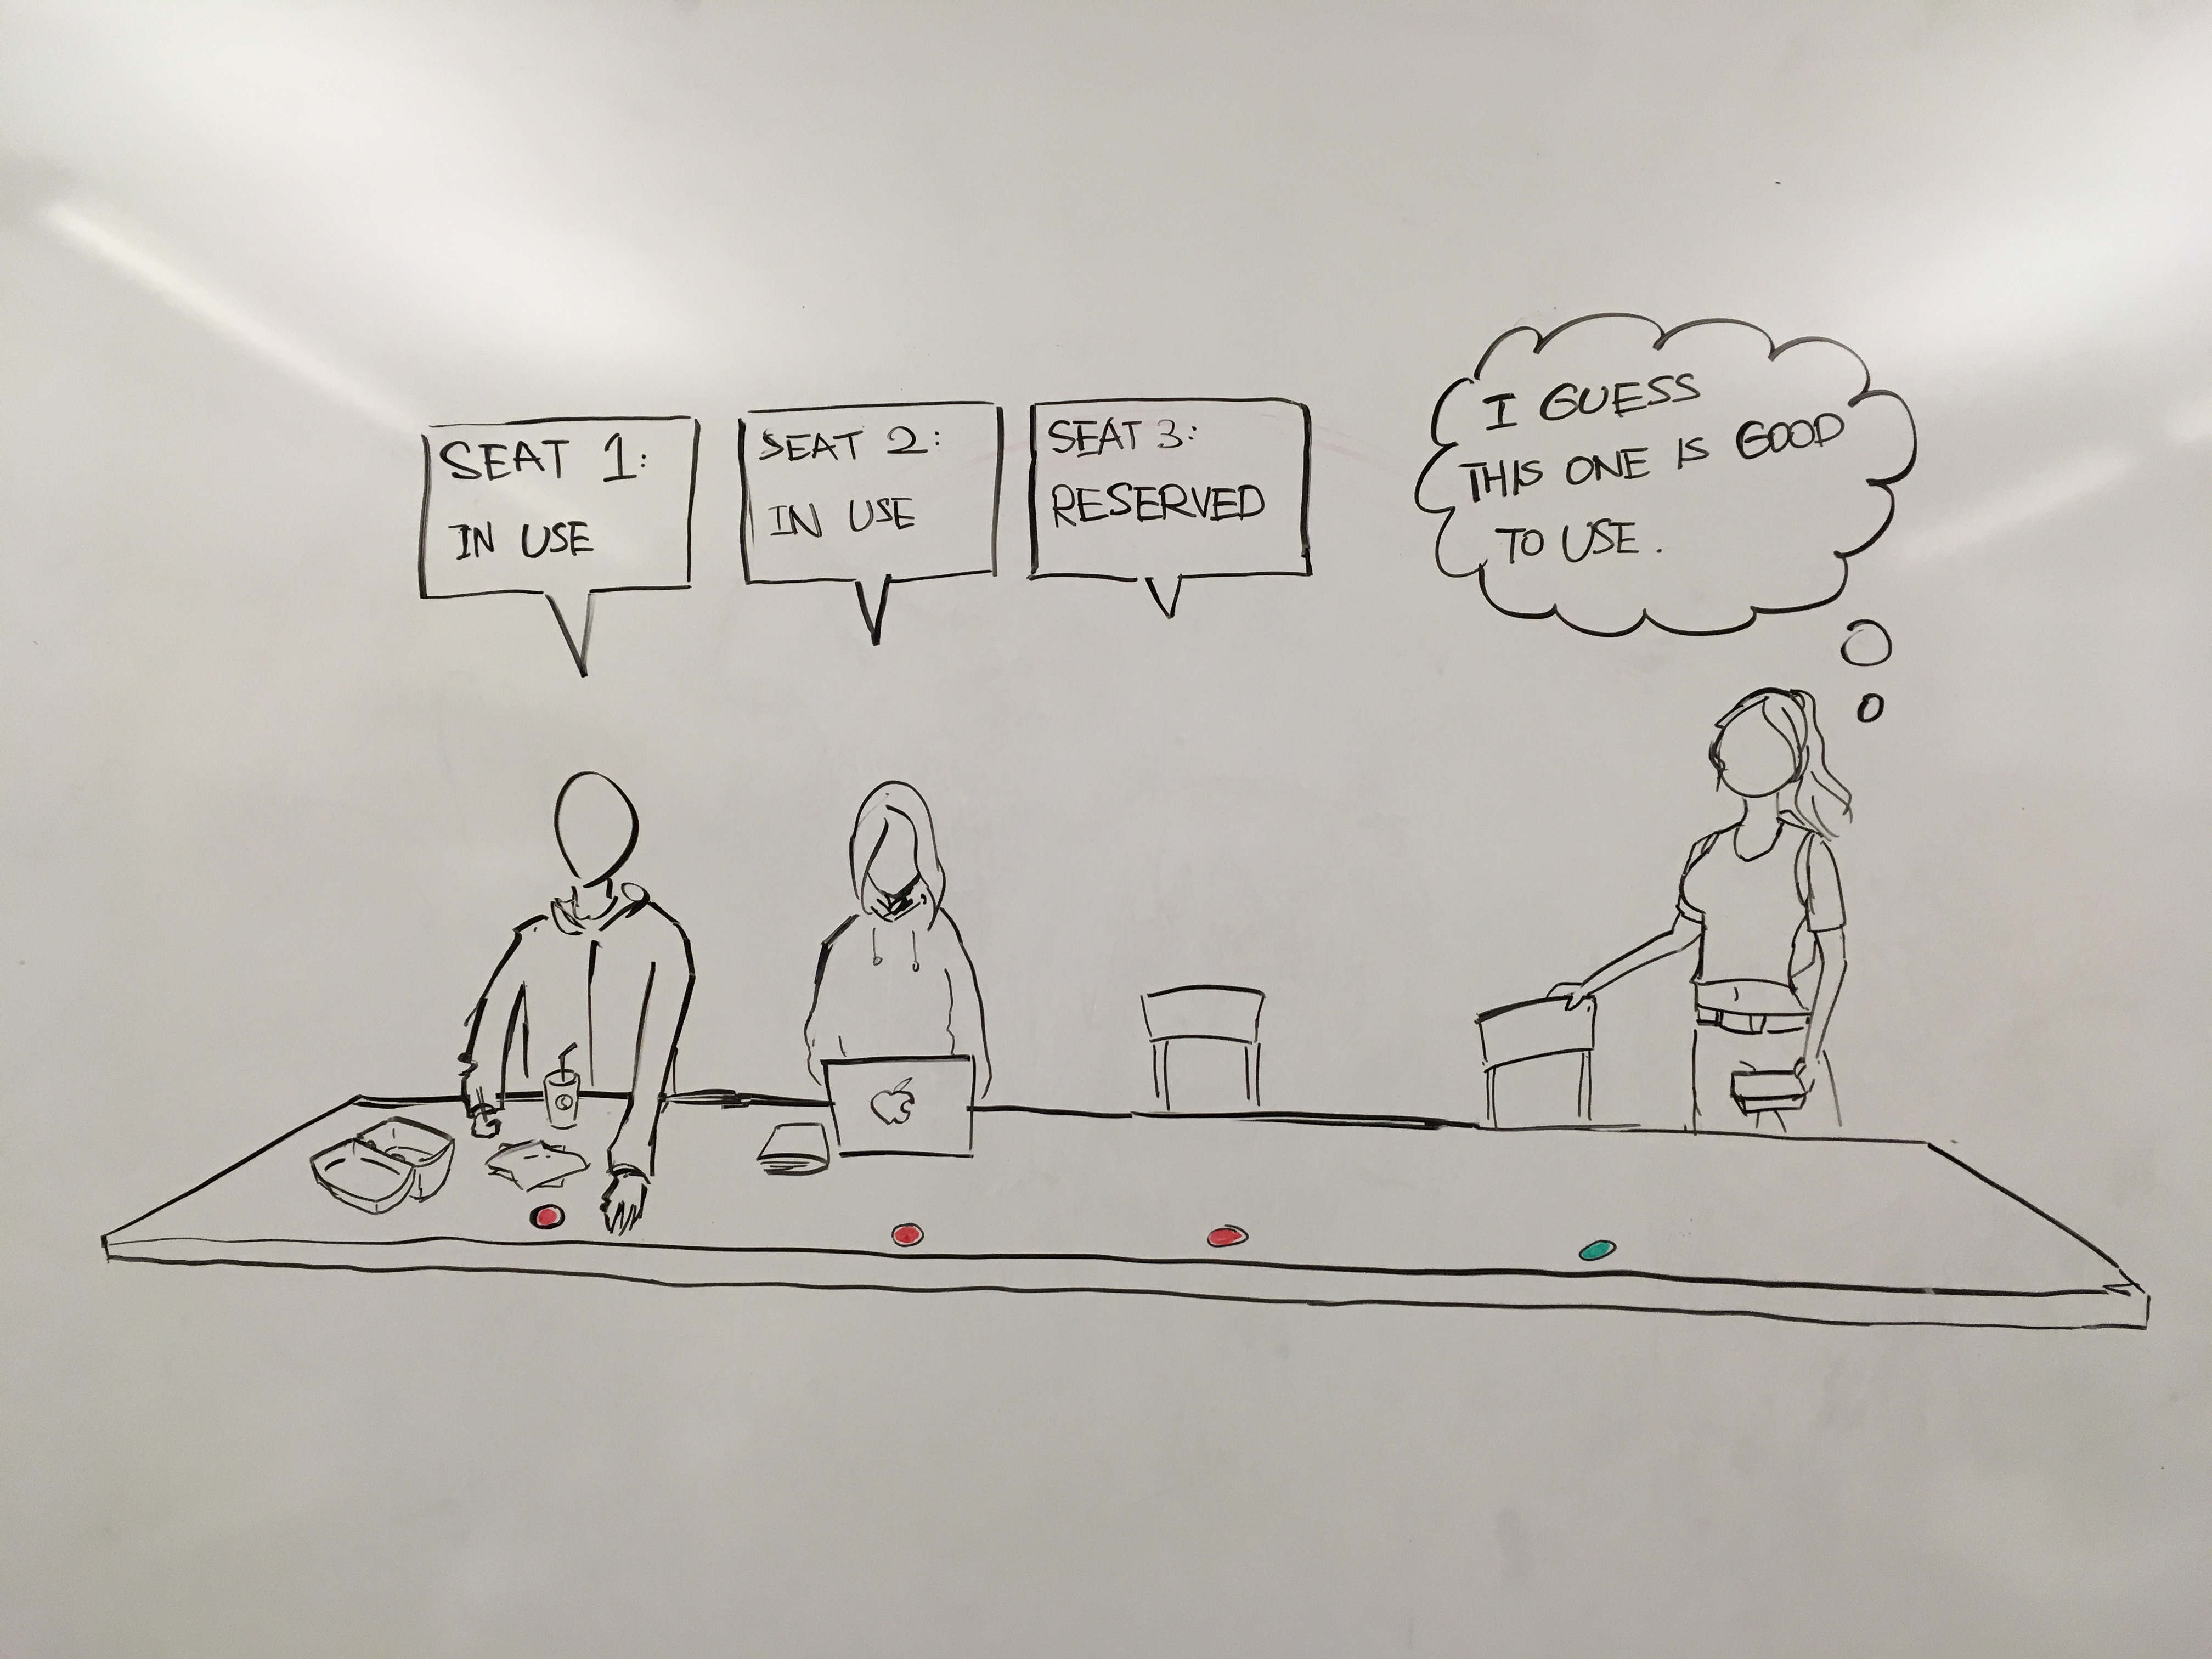 SEAT 1:
IN USE
SEAT 2:
IN USE
SEAT 3:
RESERVED
I GUESS
THIS ONE IS GOOD
TO USE.